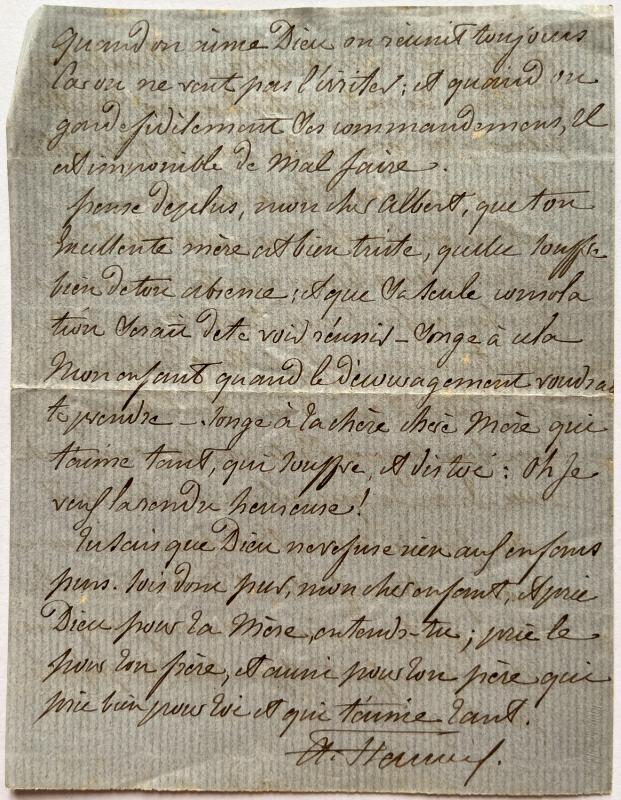 quand on aime Dieu on réunit toujours
Car on ne veut pas l'irriter; et quand on
garde fidèlement ses commandemens, il
est impossible de mal faire.
pense deplus, mon cher Albert, que ton
Excellente mère est bien triste, quelle souffre
bien de ton absence; et que sa seule consola
tion serait de te voir réunir - songe à cela
Mon enfant quand le découragement voudrait
te prendre - songe à ta chère chère Mère qui
t'aime tant, qui souffre, et dis toi: Oh Je
veux la rendre heureuse!
tu sais que Dieu ne refuse rien aux enfans
purs. sois donc pur, mon cher enfant, et prie
Dieu pour ta Mère, entends-tu; prie le
pour ton père, et aussi pour ton père qui
prie bien pour toi et qui t'aime tant.